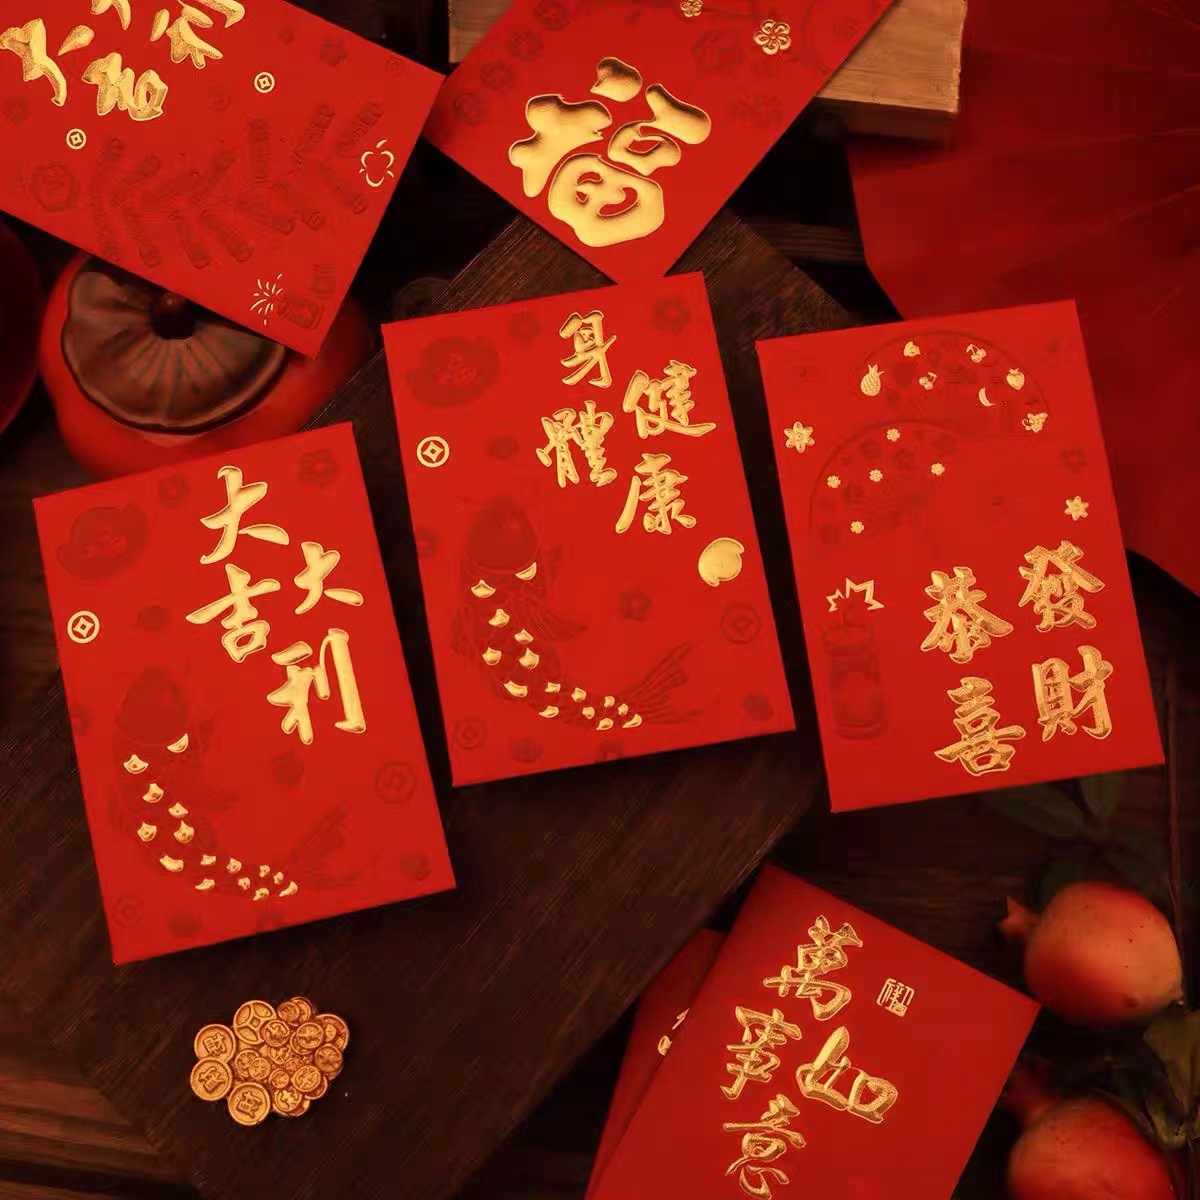 大吉
大利
福
身體
健康
大吉
大利
恭喜
發財
萬事
如意